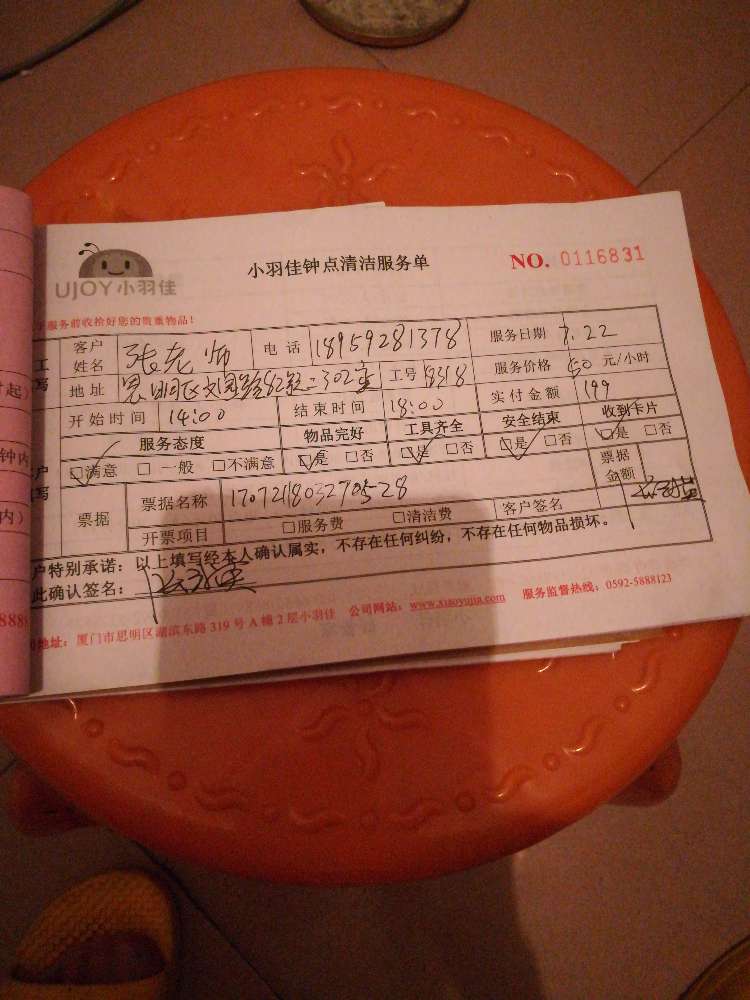 UJOY小羽佳
小羽佳钟点清洁服务单
NO. 0116831
服务前收拾好您的贵重物品!
客户姓名 张老师 电话 18959281378 服务日期 7.22
地址 思明区文园路 302室 工号 8318 服务价格 50 元/小时
开始时间 14:00 结束时间 18:00 实付金额 199
服务态度 物品完好 工具齐全 安全结束 收到卡片
□满意 □ 一般 □不满意 □是 □否 □是 □否 □是 □否 □是 □否
票据 票据名称 17072118032705 28 票据金额
开票项目 □服务费 □清洁费 客户签名
户特别承诺:以上填写经本人确认属实,不存在任何纠纷,不存在任何物品损坏。
此确认签名:
地址:厦门市思明区湖滨东路 319 号 A 幢 2 层小羽佳 公司网站:www.xiaoyujia.com 服务监督热线:0592-5888123